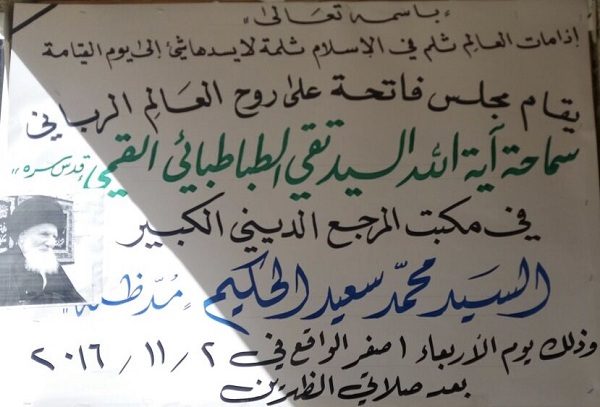 "باسمه تعالى"
إذا مات العالم ثلم في الإسلام ثلمة لا يسدها شئ إلى يوم القيامة
يقام مجلس فاتحة على روح العالم الرباني
سماحة آية الله السيد تقي الطباطبائي القمي "قدس سره"
في مكتب المرجع الديني الكبير
السيد محمد سعيد الحكيم "مد ظله"
وذلك يوم الأربعاء ١ صفر الواقع في ٢ / ١١ / ٢٠١٦
بعد صلاتي الظهرين